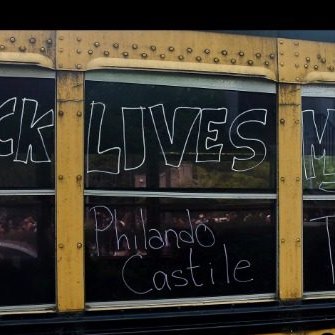 CK LIVES M
Philando
Castile